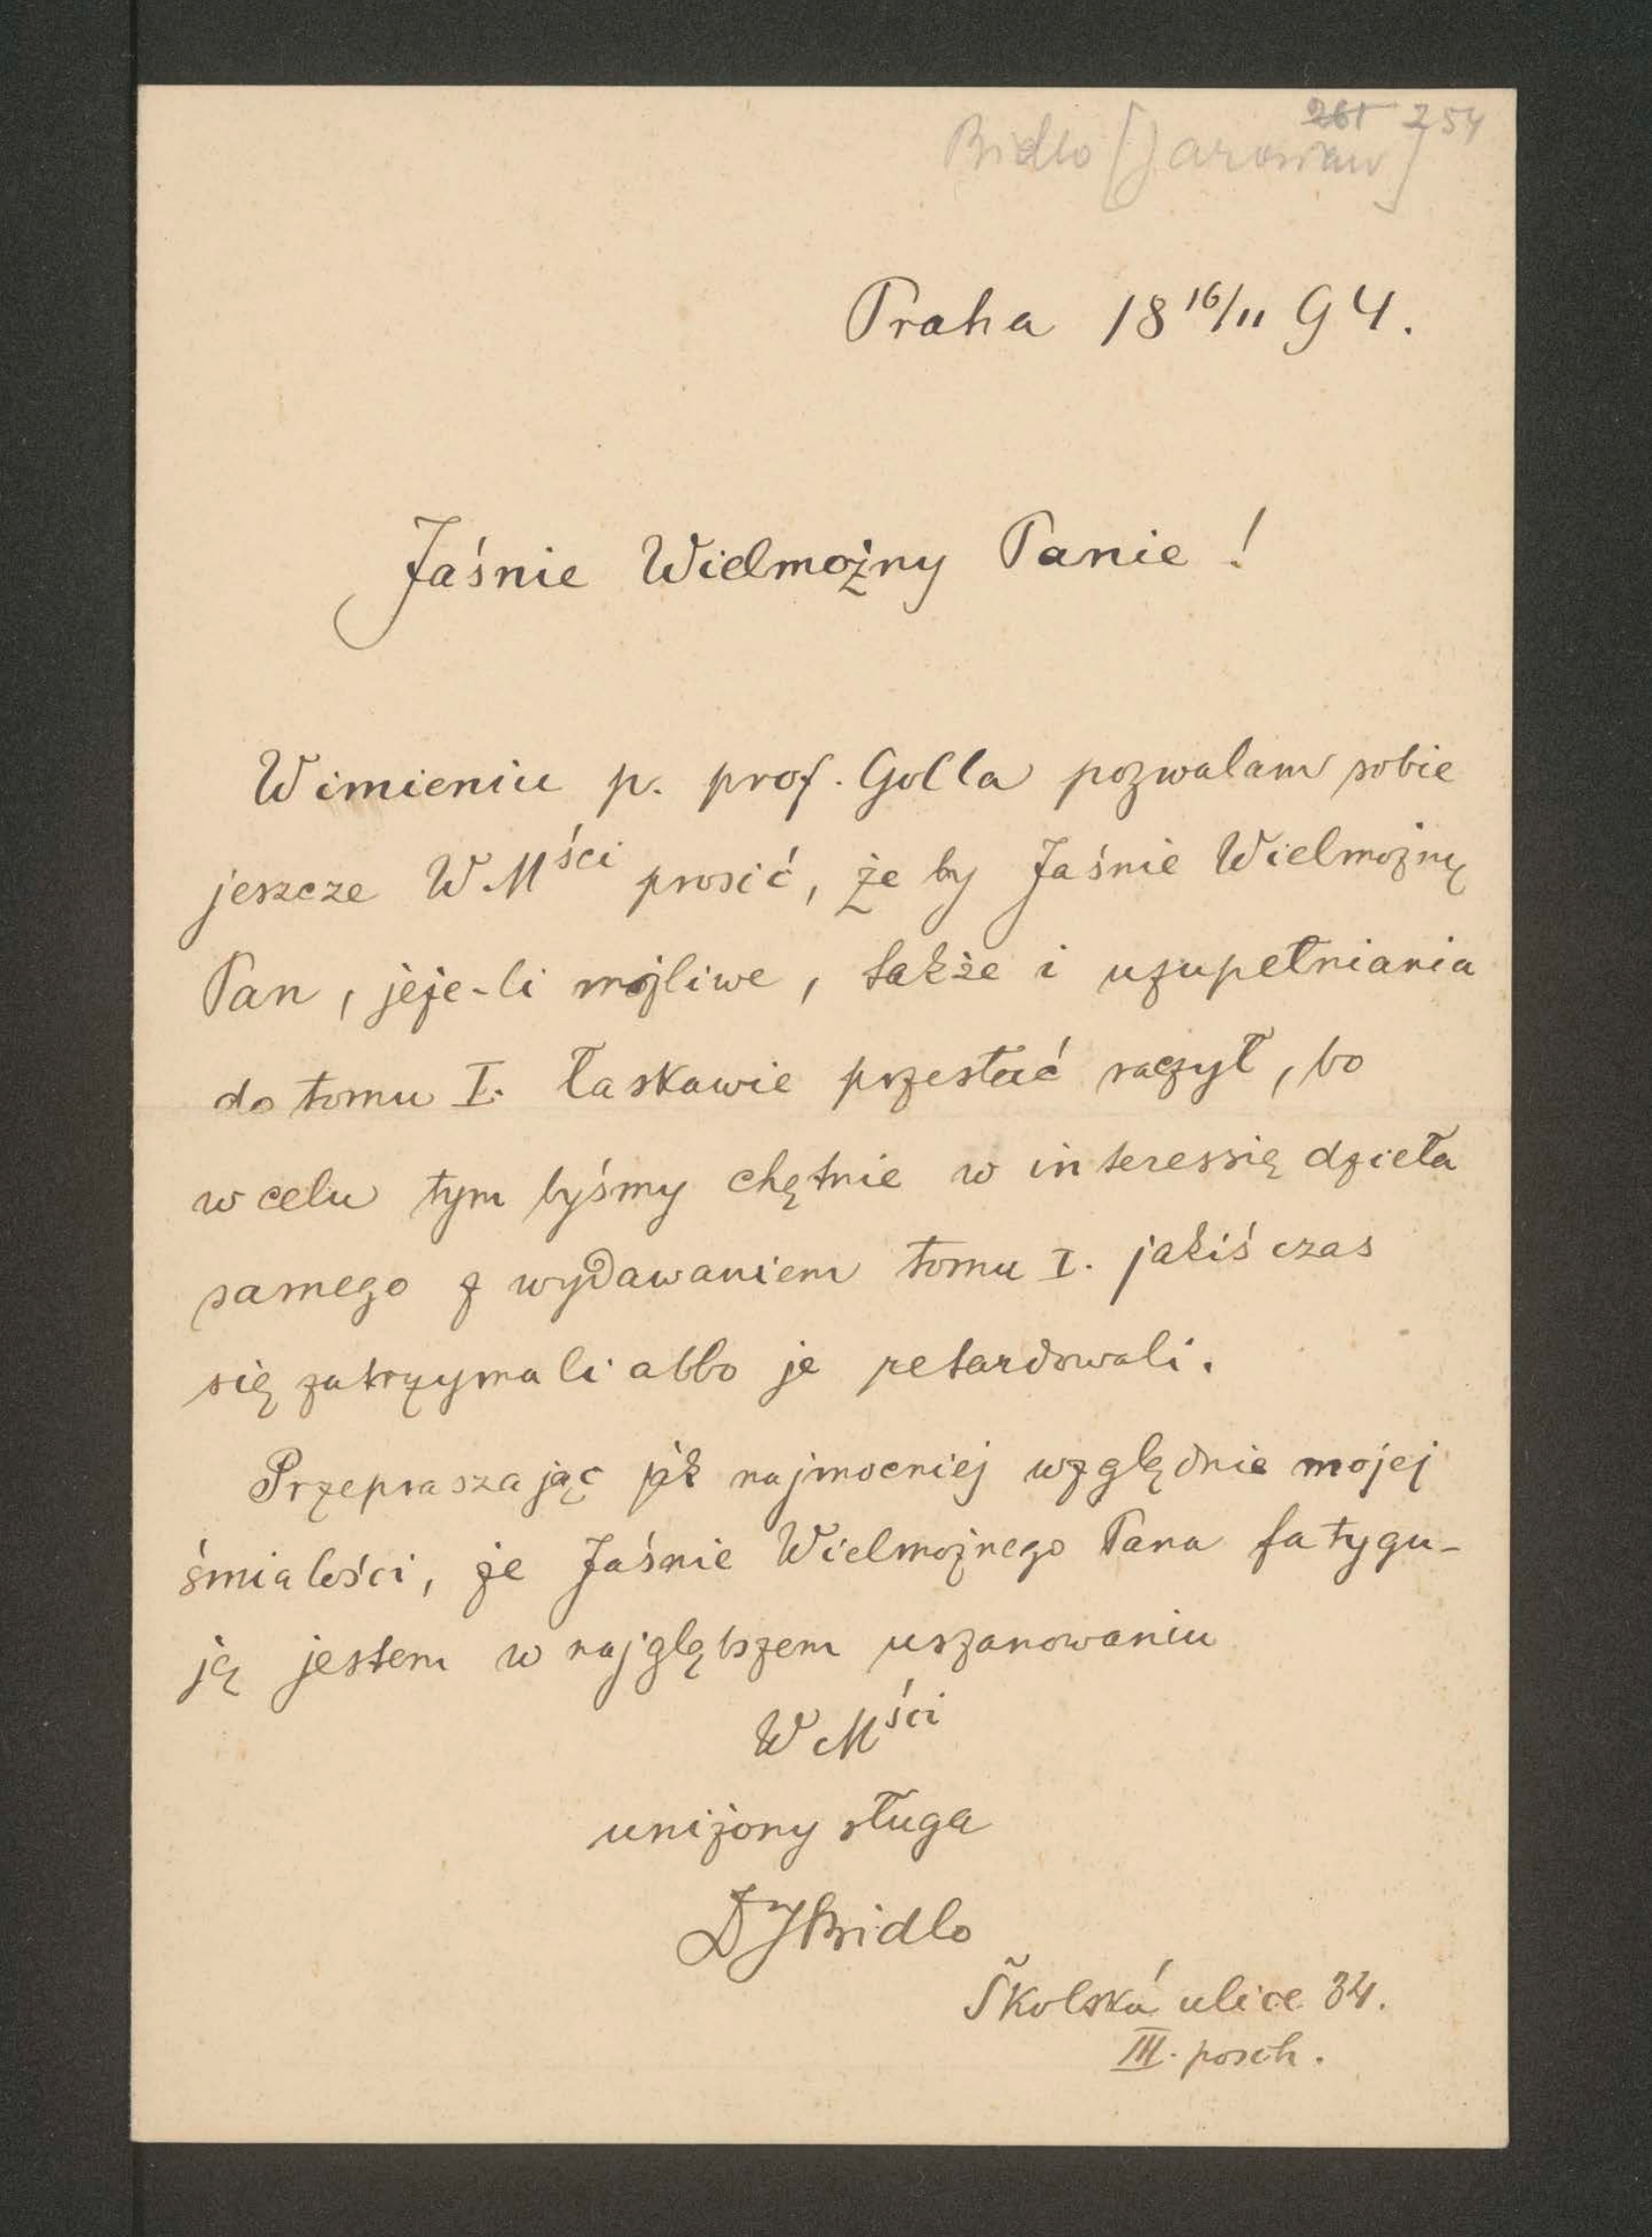 261 254
Bidlo [Jarosław]
Praha 18 16/11 94.
Jaśnie Wielmożny Panie!
W imieniu p. prof. Golla pozwalam sobie
jeszcze WMści prosić, że by Jaśnie Wielmożny
Pan, jeże-li możliwe, także i uzupełniania
do tomu I. łaskawie przesłać raczył, bo
w celu tym byśmy chętnie w interessię dzieła
samego z wydawaniem tomu I. jakiś czas
się zatrzymali albo je retardowali.
Przepraszając jak najmocniej względnie mojej
śmialości, że Jaśnie Wielmożnego Pana fatygu-
ję jestem w najglębszem uszanowaniu
WMści
uniżony sługa
DJBidlo
Školská ulice 34.
III. posch.